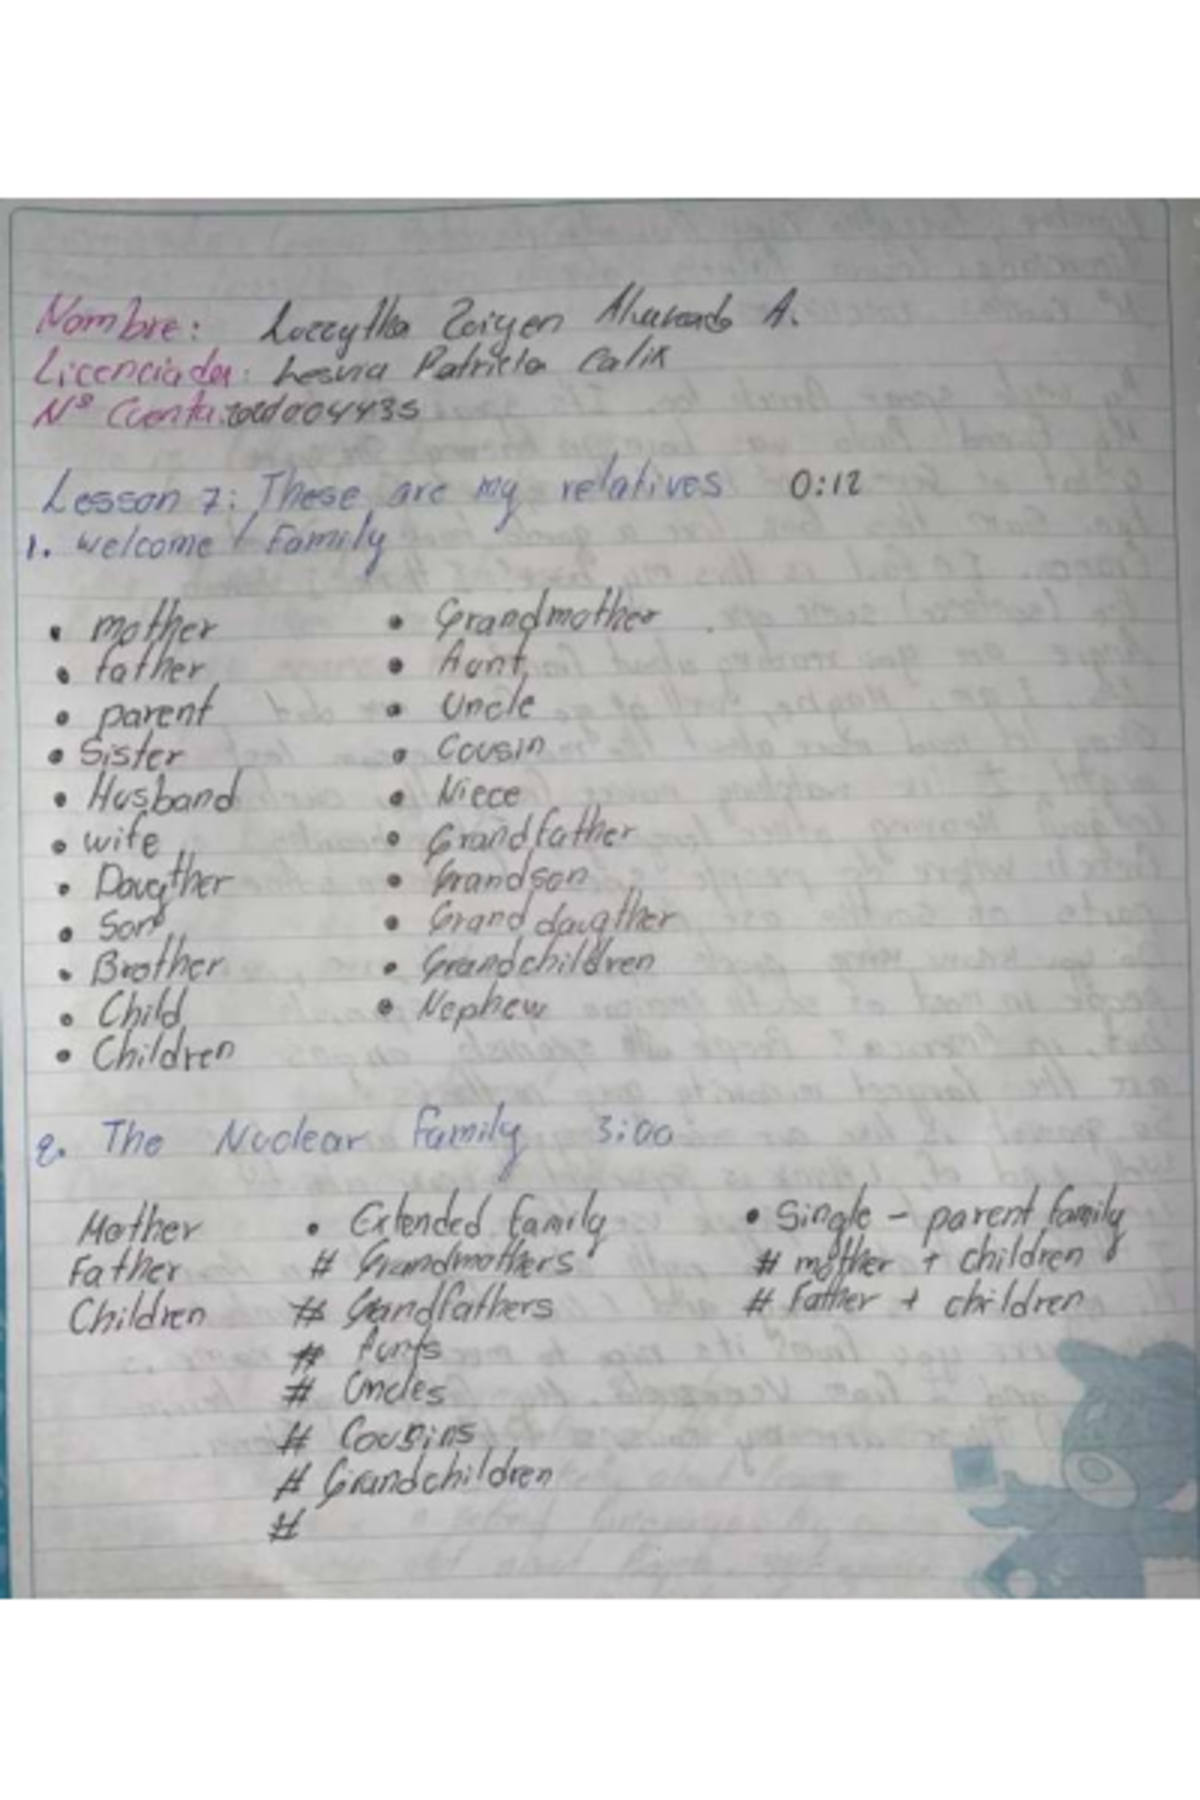 Nombre: Alvarado A.
Licenciada: Lesvia Patricia Calix
N° Cuenta:
Lesson 7: These are my relatives 0:12
1. Welcome / Family
• mother
• father
• parent
• Sister
• Husband
• wife
• Daugther
• Son
• Brother
• Child
• Children
• Grandmother
• Aunt
• Uncle
• Cousin
• Niece
• Grandfather
• Grandson
• Grand daugther
• Grandchildren
• Nephew
2. The Nuclear Family 3:00
Mother
Father
Children
• Extended family
# Grandmothers
# Grandfathers
# Aunts
# Uncles
# Cousins
# Grandchildren
#
• Single - parent family
# mother + children
# Father + children